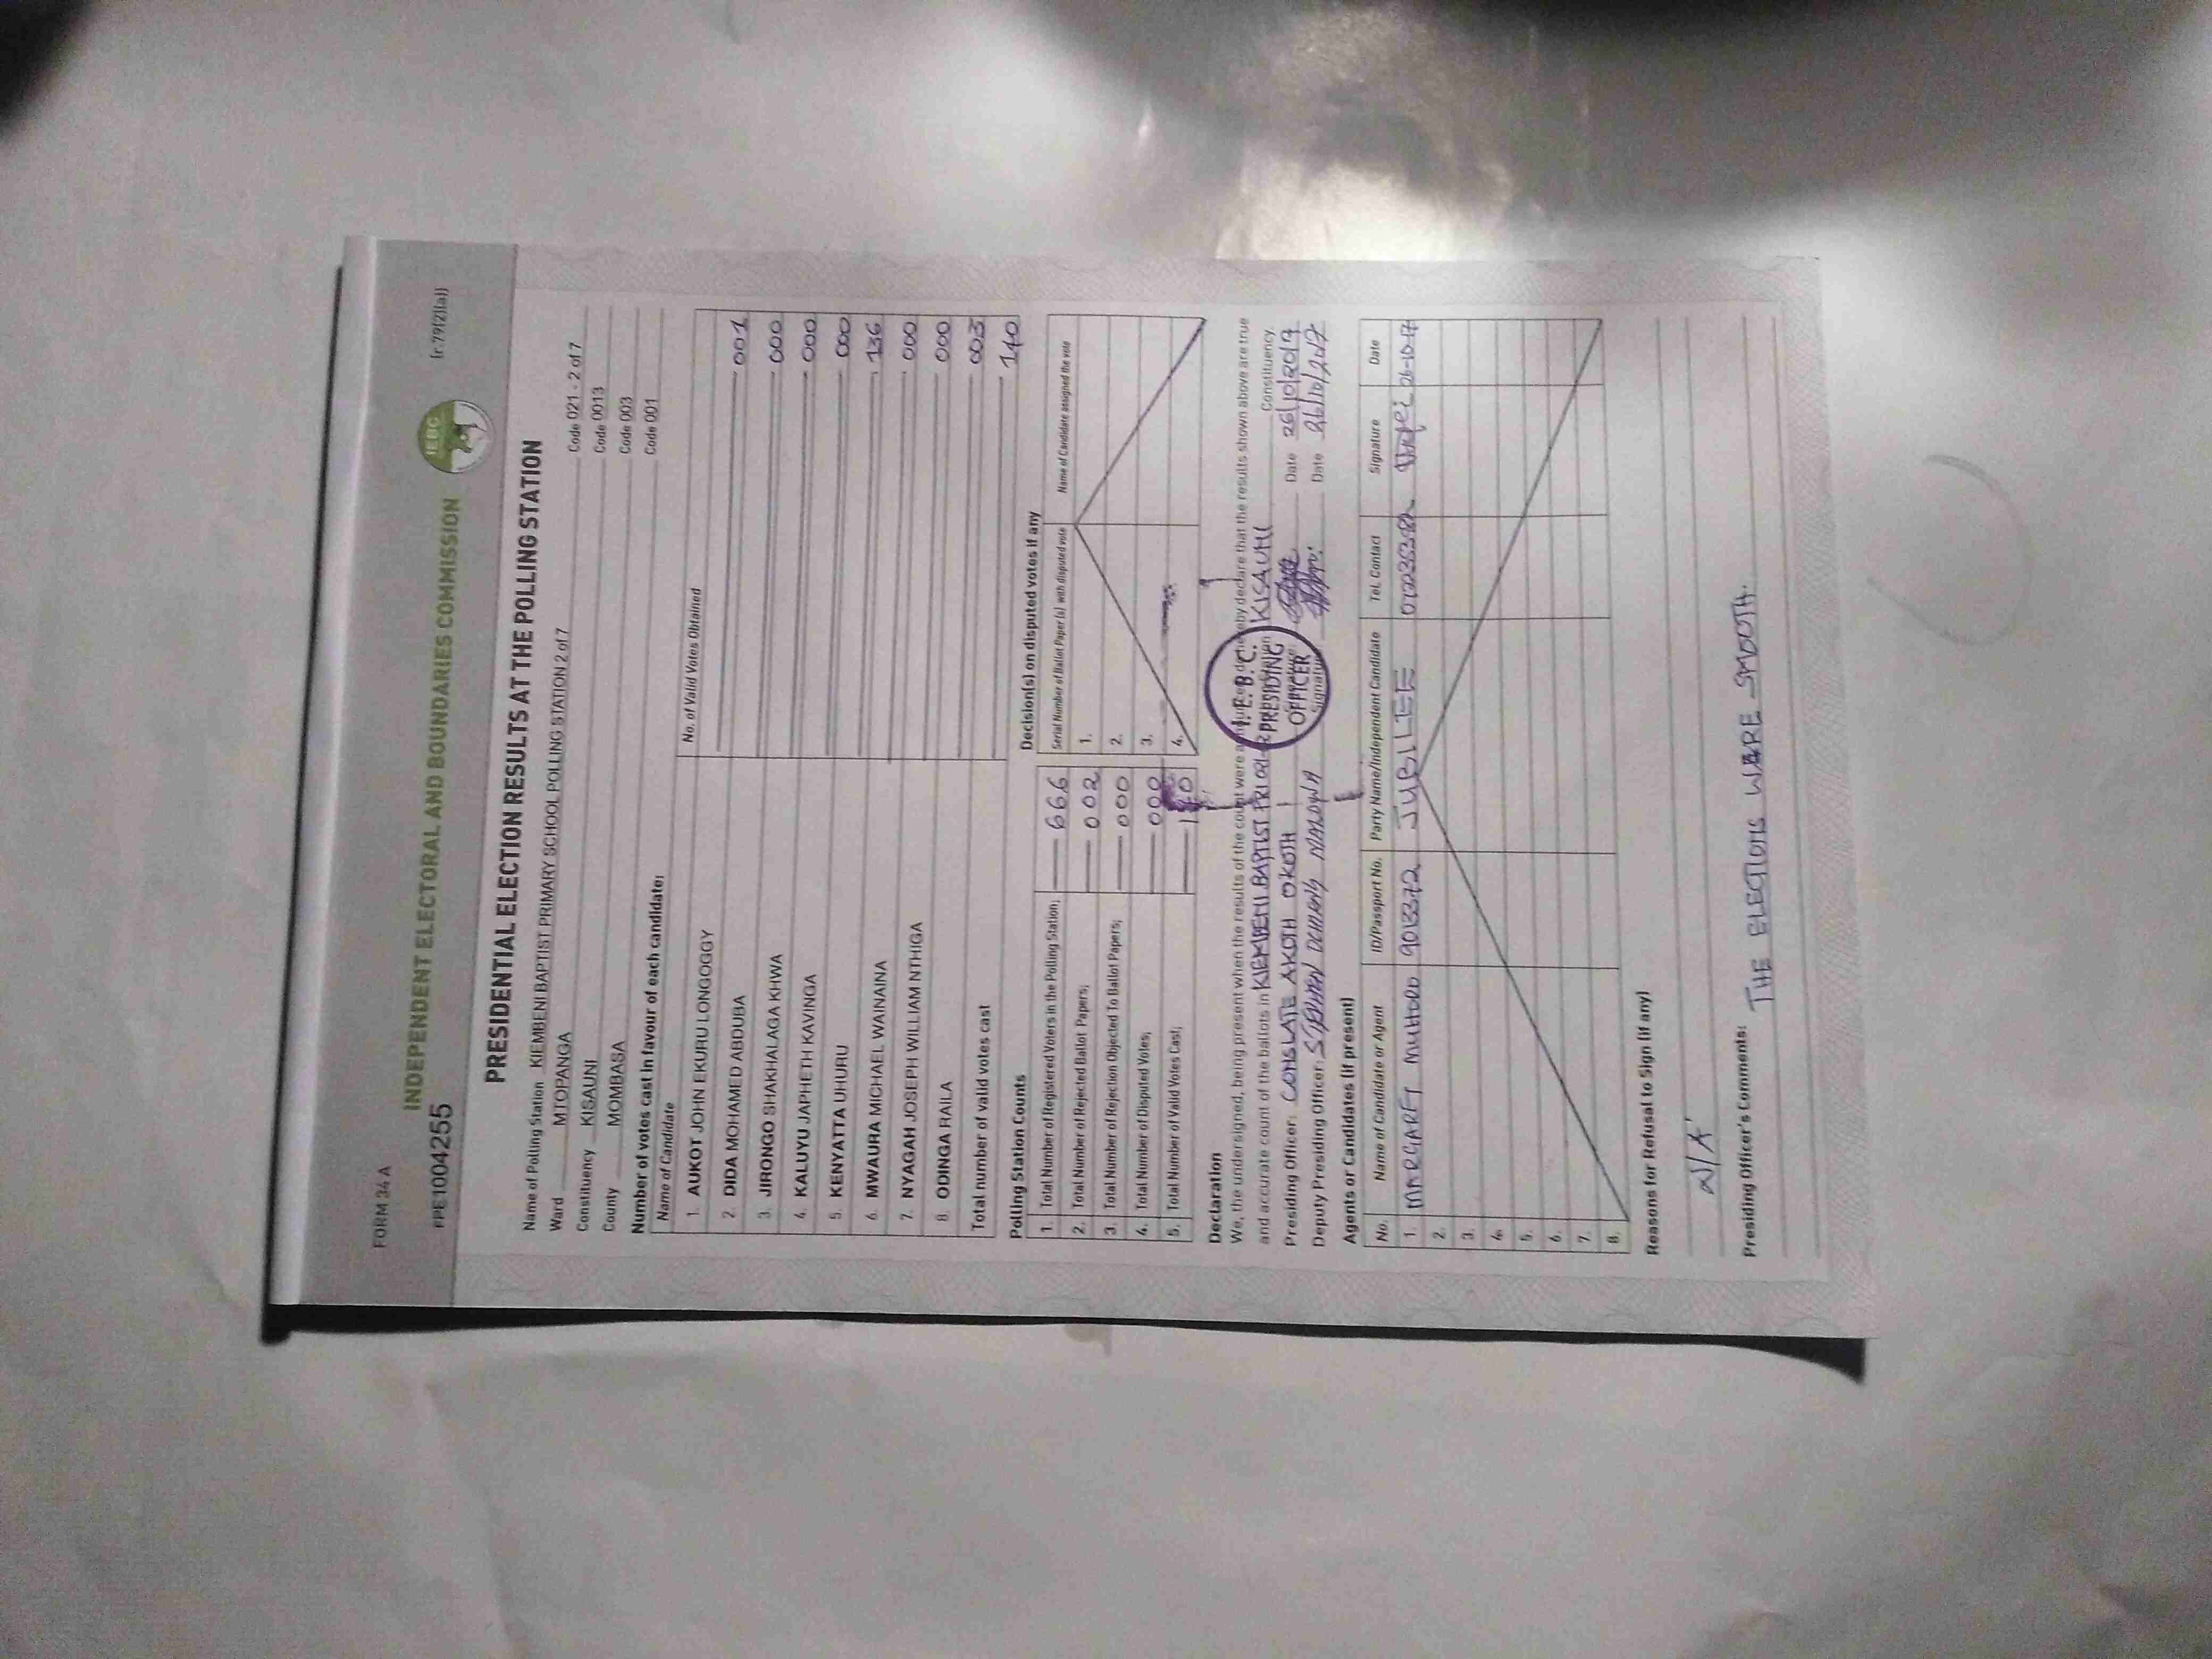 FORM 34 A
(r.79(2)(a))
INDEPENDENT ELECTORAL AND BOUNDARIES COMMISSION
IEBC
FPE1004255
PRESIDENTIAL ELECTION RESULTS AT THE POLLING STATION
Name of Polling Station KIEMBENI BAPTIST PRIMARY SCHOOL POLLING STATION 2 of 7 Code 021 - 2 of 7
Ward MTOPANGA Code 0013
Constituency KISAUNI Code 003
County MOMBASA Code 001
Number of votes cast in favour of each candidate:
Name of Candidate No. of Valid Votes Obtained
1. AUKOT JOHN EKURU LONGOGGY 001
2. DIDA MOHAMED ABDUBA 000
3. JIRONGO SHAKHALAGA KHWA 000
4. KALUYU JAPHETH KAVINGA 000
5. KENYATTA UHURU 136
6. MWAURA MICHAEL WAINAINA 000
7. NYAGAH JOSEPH WILLIAM NTHIGA 000
8. ODINGA RAILA 003
Total number of valid votes cast 140
Polling Station Counts
1. Total Number of Registered Voters in the Polling Station; 666
2. Total Number of Rejected Ballot Papers; 002
3. Total Number of Rejection Objected To Ballot Papers; 000
4. Total Number of Disputed Votes; 000
5. Total Number of Valid Votes Cast; 140
Decision(s) on disputed votes if any
Serial Number of Ballot Paper (s) with disputed vote Name of Candidate assigned the vote
1.
2.
3.
4.
Declaration
We, the undersigned, being present when the results of the count were announced, do hereby declare that the results shown above are true
and accurate count of the ballots in KIEMBENI BAPTIST PRI Polling Station KISAUNI Constituency.
Presiding Officer: CONSLATE AKOTH OKOTH Signature Date 26/10/2017
Deputy Presiding Officer: STEPHEN Signature Date 26/10/2017
I.E.B.C.
PRESIDING
OFFICER
Agents or Candidates (if present)
No. Name of Candidate or Agent ID/Passport No. Party Name/Independent Candidate Tel. Contact Signature Date
1. MARGARET 9013372 JUBILEE 26-10-17
2.
3.
4.
5.
6.
7.
8.
Reasons for Refusal to Sign (if any)
N/A
Presiding Officer's Comments:
THE ELECTIONS WERE SMOOTH.